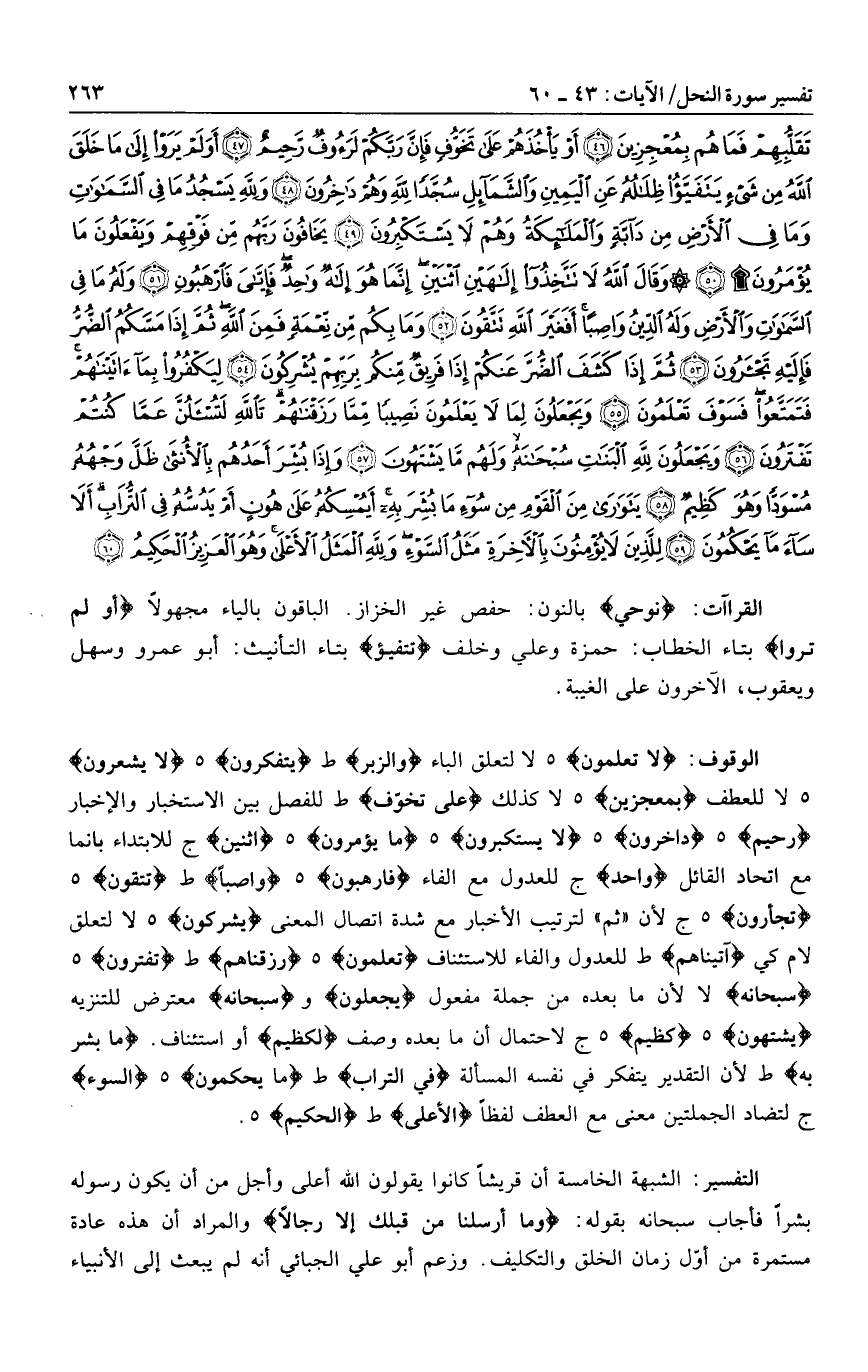 تفسير سورة النحل/ الآيات: ٤٣ ـ ٦٠ ٢٦٣
تَقَلُّبِهِمْ فَمَا هُم بِمُعْجِزِينَ ﴿٤٦﴾ أَوْ يَأْخُذَهُمْ عَلَىٰ تَخَوُّفٍ فَإِنَّ رَبَّكُمْ لَرَءُوفٌ رَّحِيمٌ ﴿٤٧﴾ أَوَلَمْ يَرَوْا۟ إِلَىٰ مَا خَلَقَ
ٱللَّهُ مِن شَىْءٍ يَتَفَيَّؤُا۟ ظِلَٰلُهُۥ عَنِ ٱلْيَمِينِ وَٱلشَّمَآئِلِ سُجَّدًا لِّلَّهِ وَهُمْ دَٰخِرُونَ ﴿٤٨﴾ وَلِلَّهِ يَسْجُدُ مَا فِى ٱلسَّمَٰوَٰتِ
وَمَا فِى ٱلْأَرْضِ مِن دَآبَّةٍ وَٱلْمَلَٰٓئِكَةُ وَهُمْ لَا يَسْتَكْبِرُونَ ﴿٤٩﴾ يَخَافُونَ رَبَّهُم مِّن فَوْقِهِمْ وَيَفْعَلُونَ مَا
يُؤْمَرُونَ ۩ ﴿٥٠﴾ ۞ وَقَالَ ٱللَّهُ لَا تَتَّخِذُوٓا۟ إِلَٰهَيْنِ ٱثْنَيْنِ ۖ إِنَّمَا هُوَ إِلَٰهٌ وَٰحِدٌ ۖ فَإِيَّٰىَ فَٱرْهَبُونِ ﴿٥١﴾ وَلَهُۥ مَا فِى
ٱلسَّمَٰوَٰتِ وَٱلْأَرْضِ وَلَهُ ٱلدِّينُ وَاصِبًا ۚ أَفَغَيْرَ ٱللَّهِ تَتَّقُونَ ﴿٥٢﴾ وَمَا بِكُم مِّن نِّعْمَةٍ فَمِنَ ٱللَّهِ ۖ ثُمَّ إِذَا مَسَّكُمُ ٱلضُّرُّ
فَإِلَيْهِ تَجْـَٔرُونَ ﴿٥٣﴾ ثُمَّ إِذَا كَشَفَ ٱلضُّرَّ عَنكُمْ إِذَا فَرِيقٌ مِّنكُم بِرَبِّهِمْ يُشْرِكُونَ ﴿٥٤﴾ لِيَكْفُرُوا۟ بِمَآ ءَاتَيْنَٰهُمْ ۚ
فَتَمَتَّعُوا۟ ۖ فَسَوْفَ تَعْلَمُونَ ﴿٥٥﴾ وَيَجْعَلُونَ لِمَا لَا يَعْلَمُونَ نَصِيبًا مِّمَّا رَزَقْنَٰهُمْ ۗ تَٱللَّهِ لَتُسْـَٔلُنَّ عَمَّا كُنتُمْ
تَفْتَرُونَ ﴿٥٦﴾ وَيَجْعَلُونَ لِلَّهِ ٱلْبَنَٰتِ سُبْحَٰنَهُۥ ۙ وَلَهُم مَّا يَشْتَهُونَ ﴿٥٧﴾ وَإِذَا بُشِّرَ أَحَدُهُم بِٱلْأُنثَىٰ ظَلَّ وَجْهُهُۥ
مُسْوَدًّا وَهُوَ كَظِيمٌ ﴿٥٨﴾ يَتَوَٰرَىٰ مِنَ ٱلْقَوْمِ مِن سُوٓءِ مَا بُشِّرَ بِهِۦٓ ۚ أَيُمْسِكُهُۥ عَلَىٰ هُونٍ أَمْ يَدُسُّهُۥ فِى ٱلتُّرَابِ ۗ أَلَا
سَآءَ مَا يَحْكُمُونَ ﴿٥٩﴾ لِلَّذِينَ لَا يُؤْمِنُونَ بِٱلْآخِرَةِ مَثَلُ ٱلسَّوْءِ ۖ وَلِلَّهِ ٱلْمَثَلُ ٱلْأَعْلَىٰ ۚ وَهُوَ ٱلْعَزِيزُ ٱلْحَكِيمُ ﴿٦٠﴾
القراآت: ﴿نوحي﴾ بالنون: حفص غير الخزاز. الباقون بالياء مجهولاً ﴿أو لم
تروا﴾ بتاء الخطاب: حمزة وعلي وخلف ﴿تتفيؤ﴾ بتاء التأنيث: أبو عمرو وسهل
ويعقوب، الآخرون على الغيبة.
الوقوف: ﴿لا تعلمون﴾ ٥ لا لتعلق الباء ﴿والزبر﴾ ط ﴿يتفكرون﴾ ٥ ﴿لا يشعرون﴾
٥ لا للعطف ﴿بمعجزين﴾ ٥ لا كذلك ﴿على تخوّف﴾ ط للفصل بين الاستخبار والإخبار
﴿رحيم﴾ ٥ ﴿داخرون﴾ ٥ ﴿لا يستكبرون﴾ ٥ ﴿ما يؤمرون﴾ ٥ ﴿اثنين﴾ ج للابتداء بانما
مع اتحاد القائل ﴿واحد﴾ ج للعدول مع الفاء ﴿فارهبون﴾ ٥ ﴿واصباً﴾ ط ﴿تتقون﴾ ٥
﴿تجأرون﴾ ٥ ج لأن «ثم» لترتيب الأخبار مع شدة اتصال المعنى ﴿يشركون﴾ ٥ لا لتعلق
لام كي ﴿آتيناهم﴾ ط للعدول والفاء للاستئناف ﴿تعلمون﴾ ٥ ﴿رزقناهم﴾ ط ﴿تفترون﴾ ٥
﴿سبحانه﴾ لا لأن ما بعده من جملة مفعول ﴿يجعلون﴾ و ﴿سبحانه﴾ معترض للتنزيه
﴿يشتهون﴾ ٥ ﴿كظيم﴾ ٥ ج لاحتمال أن ما بعده وصف ﴿لكظيم﴾ أو استئناف. ﴿ما بشر
به﴾ ط لأن التقدير يتفكر في نفسه المسألة ﴿في التراب﴾ ط ﴿ما يحكمون﴾ ٥ ﴿السوء﴾
ج لتضاد الجملتين معنى مع العطف لفظاً ﴿الأعلى﴾ ط ﴿الحكيم﴾ ٥.
التفسير: الشبهة الخامسة أن قريشاً كانوا يقولون الله أعلى وأجل من أن يكون رسوله
بشراً فأجاب سبحانه بقوله: ﴿وما أرسلنا من قبلك إلا رجالاً﴾ والمراد أن هذه عادة
مستمرة من أوّل زمان الخلق والتكليف. وزعم أبو علي الجبائي أنه لم يبعث إلى الأنبياء